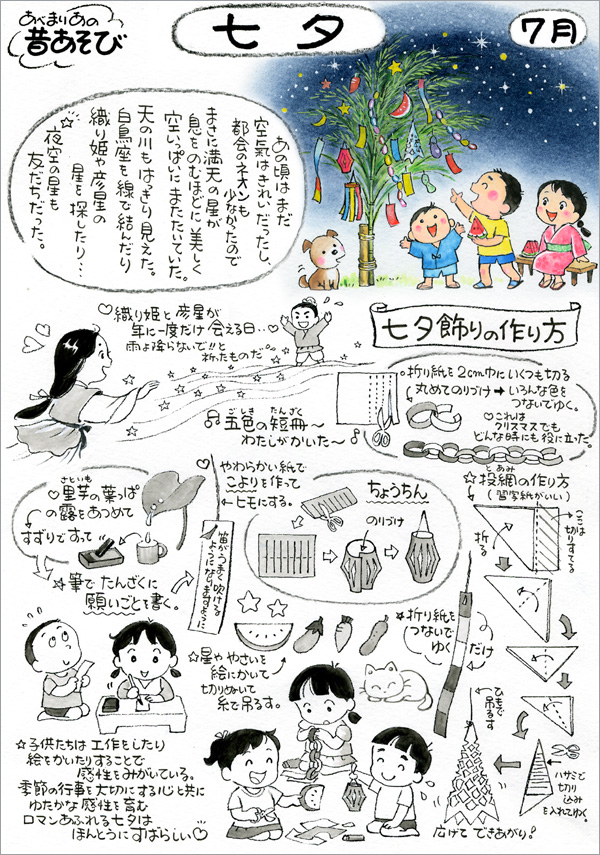 あべまりあの
昔あそび
七夕
7月
あの頃はまだ
空気はきれいだったし、
都会のネオンも
少なかったので
まさに満天の星が
息をのむほどに美しく
空いっぱいにまたたいていた。
天の川もはっきり見えた。
白鳥座を線で結んだり
織り姫や彦星の
星を探したり…
☆夜空の星も
友だちだった。
♡織り姫と彦星が
年に一度だけ会える日…
雨よ降らないで!!と
祈ったものだ。
♪五色の短冊〜
ごしき たんざく
わたしがかいた〜♪
七夕飾りの作り方
○折り紙を2cm巾にいくつも切る
丸めてのりづけ→いろんな色を
つないでゆく。
♡これは
クリスマスでも
どんな時にも役に立った。
さといも
♡里芋の葉っぱ
の露をあつめて
すずりですって
☆筆でたんざくに
願いごとを書く。
やわらかい紙で
こよりを作って
ヒモにする。
笛がうまく吹ける
ようになりますように
ちょうちん
のりづけ
とあみ
☆投網の作り方
(習字紙がいい)
折る
ここは
切りすてる
☆折り紙を
つないで
ゆく
だけ
☆星ややさいを
絵にかいて
切りぬいて
糸で吊るす。
ひもで
吊るす
ハサミで
切り
込み
を入れてゆく。
広げてできあがり!
☆子供たちは工作をしたり
絵をかいたりすることで
感性をみがいている。
季節の行事を大切にする心と共に
ゆたかな感性を育む
ロマンあふれる七夕は
ほんとうにすばらしい♡